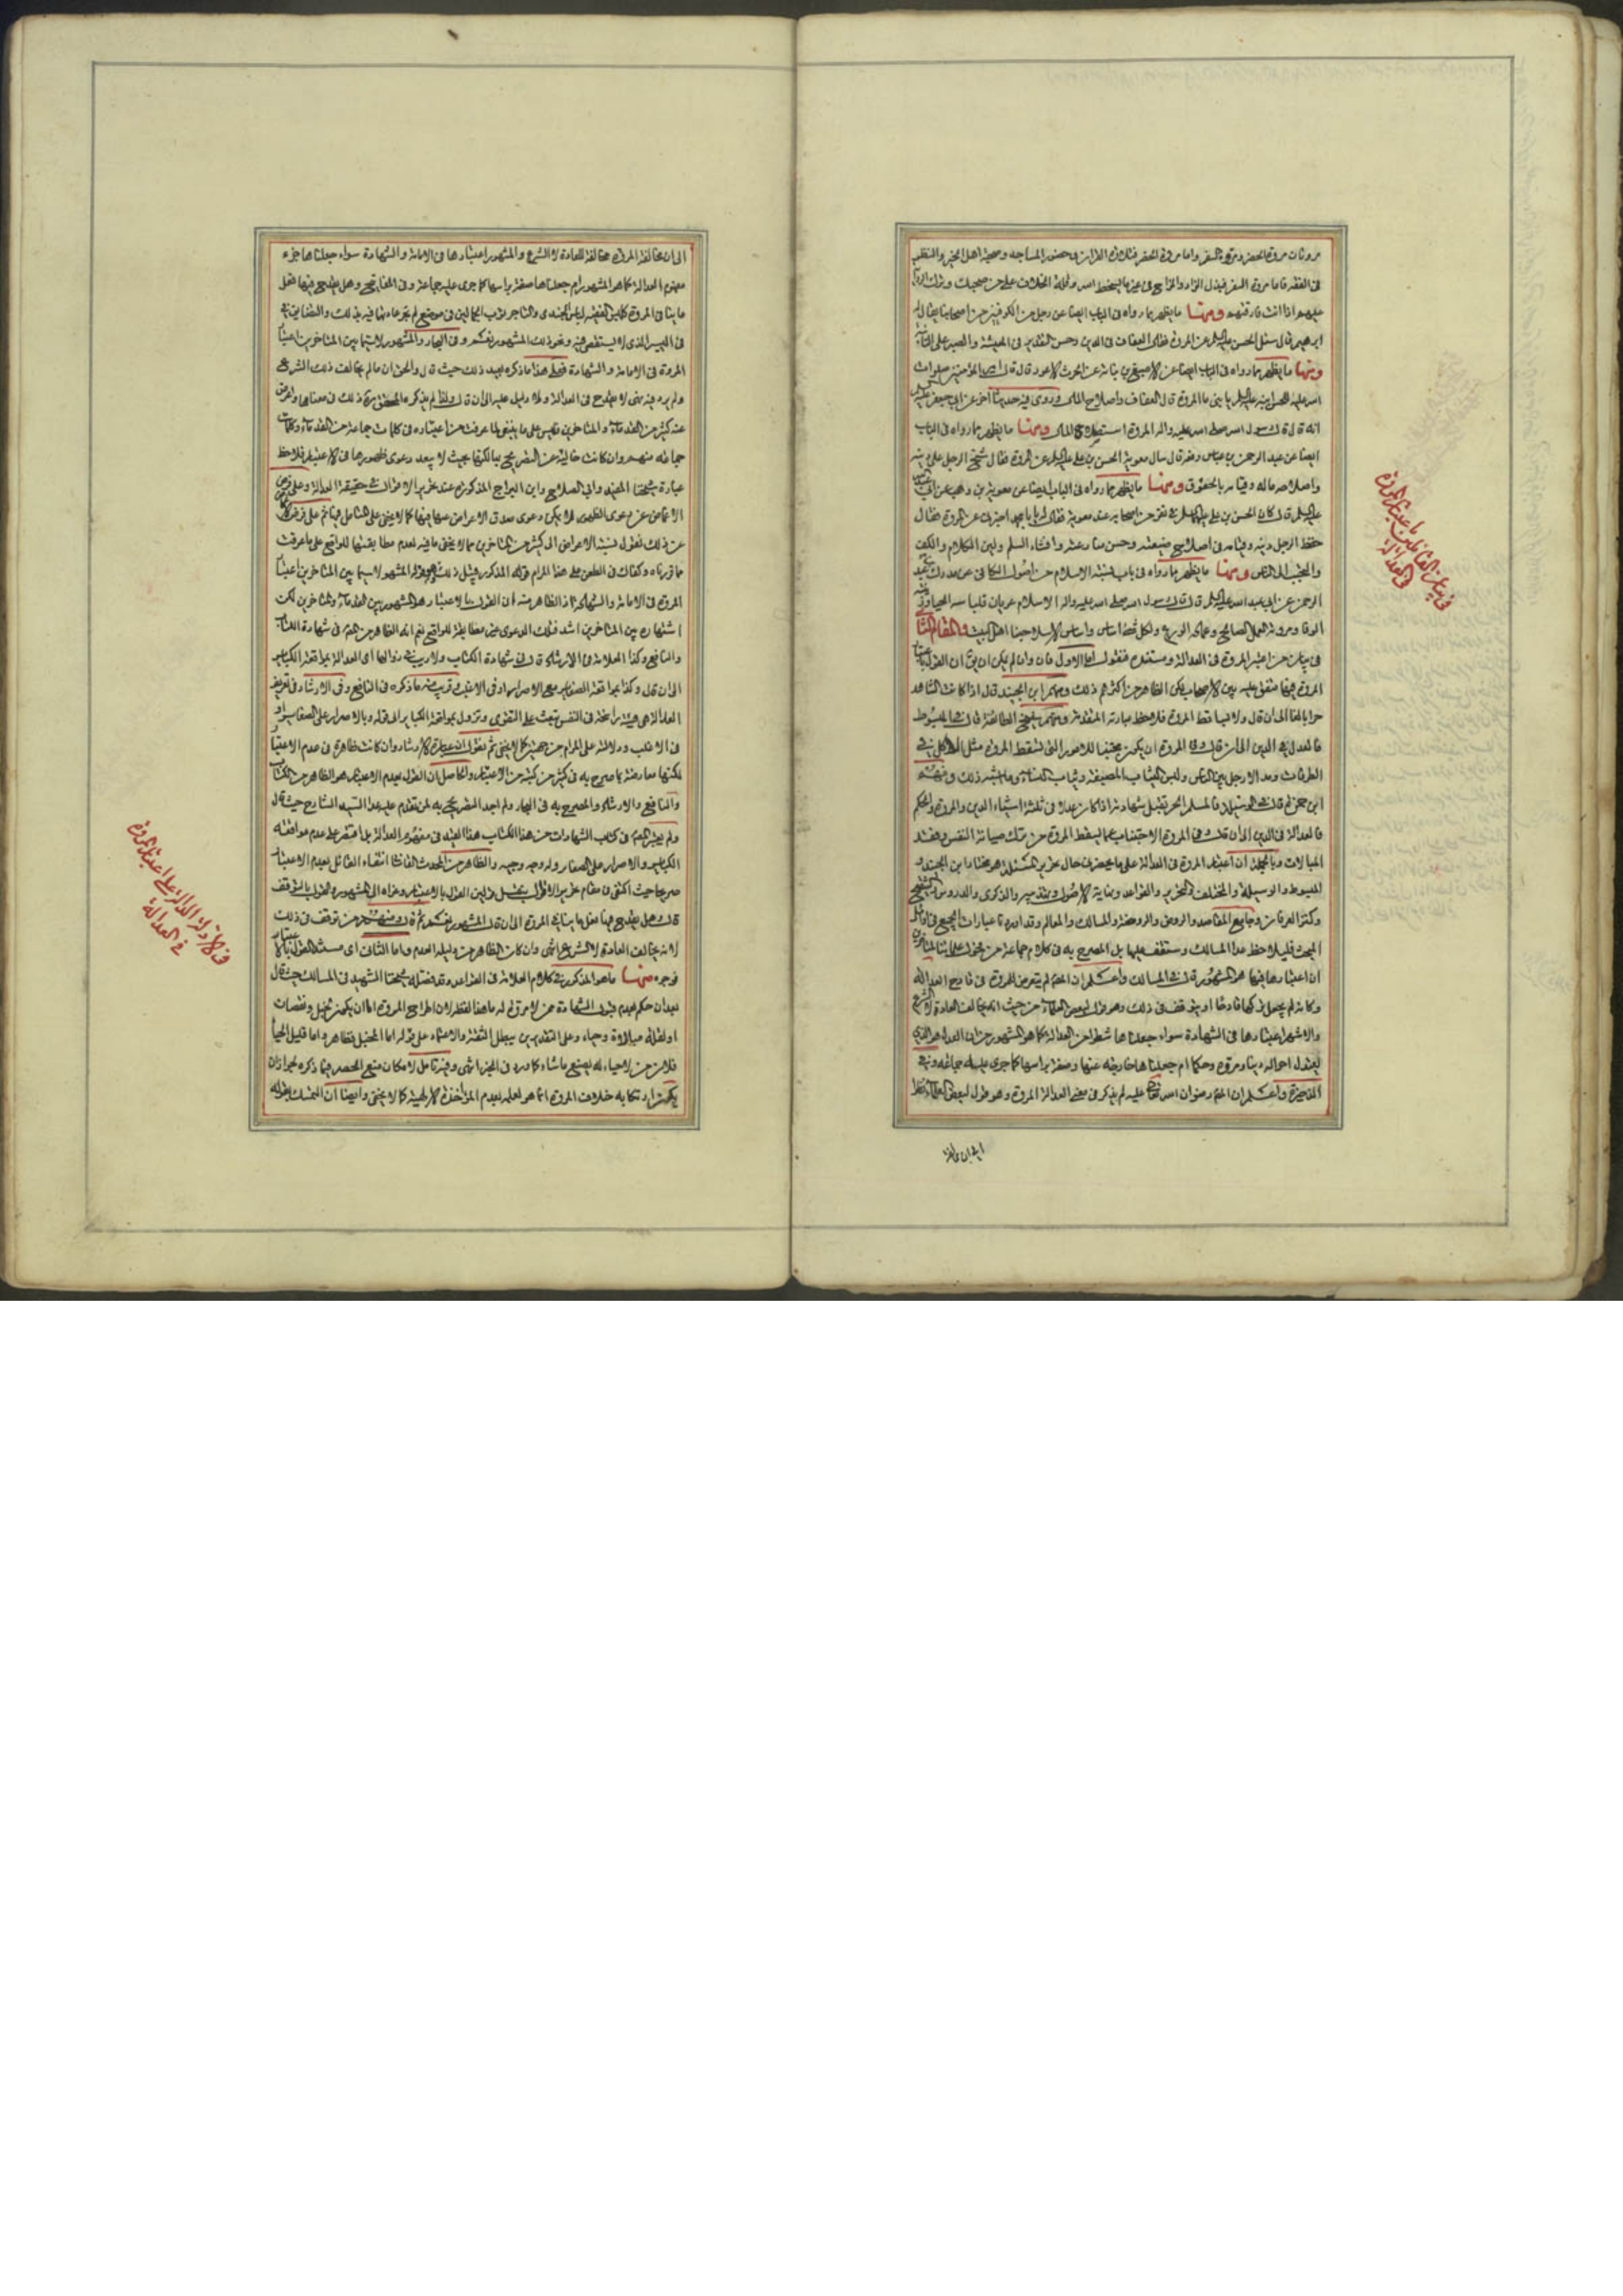 مروتان مروة الحضر ومروة السفر واما مروة الحضر فتلاوة القران وحضور المساجد وصحبة اهل الخير والنظر
في الفقه فاما مروة السفر فبذل الزاد والمزاح في غير ما يسخط الله وقلة الخلاف على من صحبك وترك الرواية
عليهم اذا انت فارقتهم ومنها ما يظهر مما رواه في الباب ايضا عن رجل من الكوفيين من اصحابنا يقال له
ابرهيم قال سئل الحسن عليه السلام عن المروة فقال العفاف في الدين وحسن التقدير في المعيشة والصبر على النائبة
ومنها ما يظهر مما رواه في الباب ايضا عن الاصبغ بن نباتة عن الحرث الاعور قال قال امير المؤمنين صلوات
الله عليه للحسن ابنه عليه السلام يا بني ما المروة قال العفاف واصلاح المال وروى فيه حديثا آخر عن ابي جعفر عليه السلام
انه قال قال رسول الله صلى الله عليه واله المروة استصلاح المال ومنها ما يظهر مما رواه في الباب
ايضا عن عبد الرحمن بن عباس رفعه قال سال معوية الحسن بن علي عليه السلام عن المروة فقال شح الرجل على دينه
واصلاحه ماله وقيامه بالحقوق ومنها ما يظهر مما رواه في الباب ايضا عن معوية بن وهب عن ابي عبد الله
عليه السلام قال كان الحسن بن علي عليه السلام في نفر من اصحابه عند معوية فقال له يا با محمد اخبرني عن المروة فقال
حفظ الرجل دينه وقيامه في اصلاح ضيعته وحسن منازعته وافشاء السلم ولين الكلام والكف
والتحبب الى الناس ومنها ما يظهر مما رواه في باب نسبة الاسلام من اصول الكافي عن مدرك بن عبد
الرحمن عن ابي عبد الله عليه السلام قال قال رسول الله صلى الله عليه واله الاسلام عريان فلباسه الحياء وزينته
الوفا ومروته العمل الصالح وعماده الورع ولكل شيء اساس واساس الاسلام حبنا اهل البيت والمقام الثاني
في بيان من اعتبر المروة في العدالة ومستنده فنقول اما الاول فان وان لم يكن ان يق ان القول باعتبار
المروة فيها متفق عليه بين الاصحاب لكن الظاهر من اكثرهم ذلك ومنهم ابن الجنيد قال اذا كان الشاهد
حرا بالغا الى ان قال ولا ساقط المروة فلاحظ عبارته المتقدمة ومنهم شيخ الطائفة قال في المبسوط
فالعدل في الدين الى ان قال وفي المروة ان يكون مجتنبا للامور التي تسقط المروة مثل الاكل في
الطرقات ومد الارجل بين الناس ولبس الثياب المصبغة وثياب النساء وما اشبه ذلك ومنهم
ابن حمزة قال في الوسيلة فالمسلم الحر تقبل شهادته اذا كان عدلا في ثلثة اشياء الدين والمروة والحكم
فالعدالة في الدين الى ان قال وفي المروة الاجتناب عما يسقط المروة من ترك صيانة النفس وفقد
المبالات وبالجملة ان اعتبار المروة في العدالة على ما يحضرني حال تحرير المسئلة هو مختار ابن الجنيد و
المبسوط والوسيلة والمختلف والتحرير والقواعد ونهاية الاصول والذكرى والدروس والتنقيح
وكنز العرفان وجامع المقاصد والروض والروضة والمسالك والمعالم
المبحث فليلاحظ عدا المسالك وستقف عليها بل المصرح به في كلام جماعة من فحول علمائنا المتاخرين
ان اعتبارها فيها هو المشهور قال في المسالك واعلم ان المص لم يتعرض للمروة في قادح العدالة
وكانه لم يجعل تركها قادحا او يتوقف في ذلك وهو قول لبعض العلماء من حيث انه يخالف العادة لا الشرع
والاشهر اعتبارها في الشهادة سواء جعلناها شطرا من العدالة كما هو المشهور من ان العدل هو الذي
تعتدل احواله دينا ومروة وحكما ام جعلناها خارجة عنها وصفة براسها كما جرى عليه جماعة وفي
الذخيرة واعلم ان المص رضوان الله تعالى عليه لم يذكر في معنى العدالة المروة وهو قول لبعض العلماء نظرا
الى ان مخالفة
في بيان القائلين باعتبار المروة
في العدالة
الى ان مخالفة المروة مخالفة للعادة لا الشرع والمشهور اعتبارها في الامامة والشهادة سواء جعلناها جزء
مفهوم العدالة كما هو المشهور ام جعلناها صفة براسها كما جرى عليه جماعة وفي المفاتيح وهل يقدح فيها فعل
ما ينافي المروة كلبس الفقيه لباس الجندي والتاجر ثوب الحمالين في موضع لم تجر عادتهما فيه بذلك والمضايق في
في اليسير الذي لا يستقصى فيه ونحو ذلك المشهور نعم وفي البحار والمشهور لا سيما بين المتاخرين اعتبار
المروة في الامامة والشهادة فعلى هذا ما ذكره بعد ذلك حيث قال والحق ان ما لم يخالف ذلك الشرع
ولم يرد فيه نهي لا يقدح في العدالة ولا دليل عليه الى ان قال ولذا لم يذكر المحقق ره ذلك في معناها واعرض
عنه كثير من القدماء والمتاخرين وليس على ما ينبغي لما عرفت من اعتباره في كلمات جماعة من القدماء وكلمات
جماعة منهم وان كانت خالية عن التصريح بها لكنها بحيث لا يبعد دعوى ظهورها في الاعتبار فلاحظ
عبارة شيخنا المفيد وابي الصلاح وابن البراج المذكورة عند تحرير الاقوال في حقيقة العدالة وعلى فرض
الاغماض عن دعوى الظهور فلا يمكن دعوى صدق الاعراض عنها فيها كما لا يخفى على المتامل فيها ثم على فرض
عن ذلك نقول نسبة الاعراض الى كثير من المتاخرين مما لا يخفى ما فيه لعدم مطابقتها للواقع على ما عرفت
مما قررناه وكفاك في الطعن على هذا المرام قوله المذكور قبيل ذلك وهو قوله المشهور لا سيما بين المتاخرين اعتبار
المروة في الامامة والشهادة اذ الظاهر منه ان القول بالاعتبار هو المشهور بين القدماء والمتاخرين لكن
اشتهاره بين المتاخرين اشد فتلك الدعوى غير مطابقة للواقع نعم انه الظاهر من المص في شهادة الكتاب
والنافع وكذا العلامة في الارشاد قال في شهادة الكتاب ولا ريب في زوالها اي العدالة بمواقعة الكباير
الى ان قال وكذا بمواقعة الصغاير مع الاصرار او في الاغلب وقريب منه ما ذكره في النافع وفي الارشاد في تعريف
العدالة هي هيئة راسخة في النفس تبعث على التقوى وتزول بمواقعة الكبائر الى قوله وبالاصرار على الصغائر او
في الاغلب ودلالته على المرام من حصره كما لا يخفى ثم نقول ان عبارة الارشاد وان كانت ظاهرة في عدم الاعتبار
لكنها معارضة بما صرح به في كثير من كتبه من الاعتبار والحاصل ان القول بعدم الاعتبار هو الظاهر من الكتاب
والنافع والارشاد والمصرح به في البحار ولم اجد التصريح به لمن تقدم عليه عدا السيد الشارح حيث قال
ولم يعتبر المص في كتاب الشهادات من هذا الكتاب هذا القيد في مفهوم العدالة بل اقتصر على عدم مواقعة
الكباير والاصرار على الصغاير وله وجه وجيه والظاهر من المحدث القاشاني انتفاء القائل بعدم الاعتبار
صريحا حيث اكتفى في مقام تحرير الاقوال بنقل قولين القول بالاعتبار وعزاه الى المشهور والقول بالتوقف
قال هل يقدح فيها فعل ما ينافي المروة الى ان قال المشهور نعم ثم قال ومنهم من توقف في ذلك
لانه يخالف العادة لا الشرع انتهى وان كان الظاهر من دليله العدم واما الثاني اي مستند القول بالاعتبار
فوجوه منها ما هو المذكور في كلام العلامة في القواعد وقد فصله شيخنا الشهيد في المسالك حيث قال
بعد ان حكم بعدم قبول الشهادة ممن لا مروة له ما هذا لفظه لان اطراح المروة اما ان يكون لخبل ونقصان
او لقلة مبالاة وحياء وعلى التقديرين يبطل الثقة والاعتماد على قوله اما الخبل فظاهر واما قليل الحياء
فلان من لا حياء له يصنع ما شاء كما ورد في الخبر انتهى وفيه تامل لامكان منع الحصر فيما ذكره لجواز ان
يكون ارتكابه خلاف المروة انما هو لعلمه بعدم المؤاخذة الالهية كما لا يخفى وايضا ان التمسك بقوله
في الادلة الدالة على اعتبار المروة
في العدالة